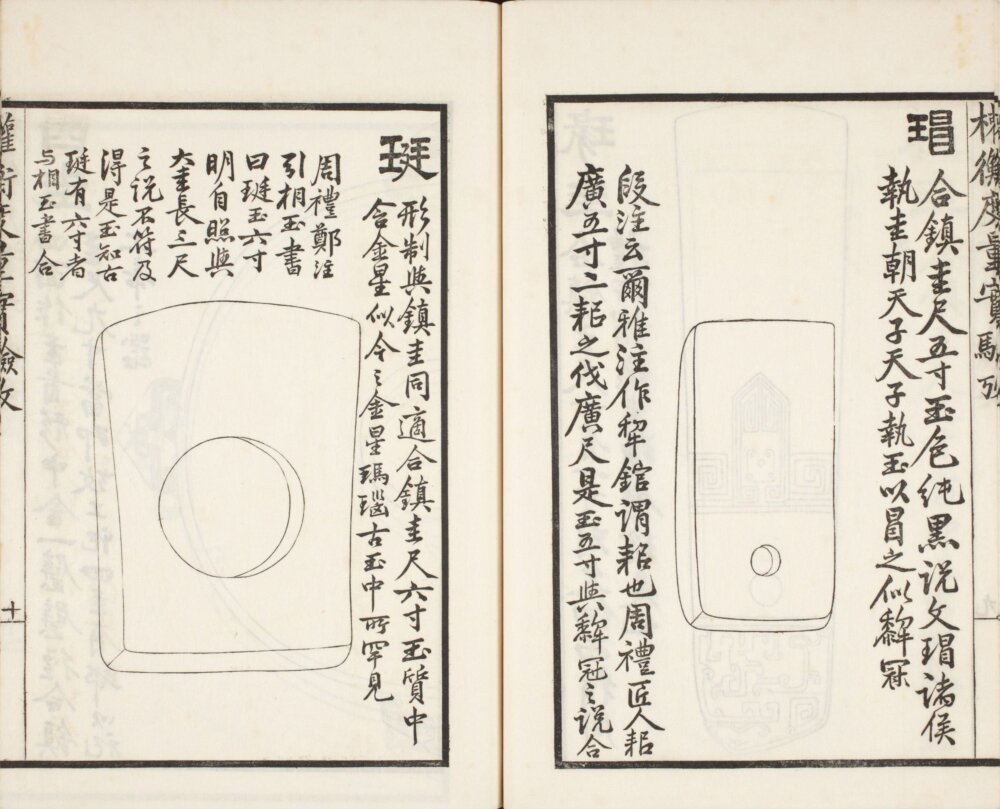 權衡度量實驗攷
瑁
合鎮圭尺五寸玉色純黑說文瑁諸侯
執圭朝天子天子執玉以冒之似犂冠
段注云爾雅注作犂錧謂耜也周禮匠人耜
廣五寸二耜之伐廣尺是玉五寸與犂冠之說合
珽
形制與鎮圭同適合鎮圭尺六寸玉質中
含金星似今之金星瑪瑙古玉中所罕見
周禮鄭注
引相玉書
曰珽玉六寸
明自照與
大圭長三尺
之說不符及
得是玉知古
珽有六寸者
与相玉書合
權衡度量實驗攷
十